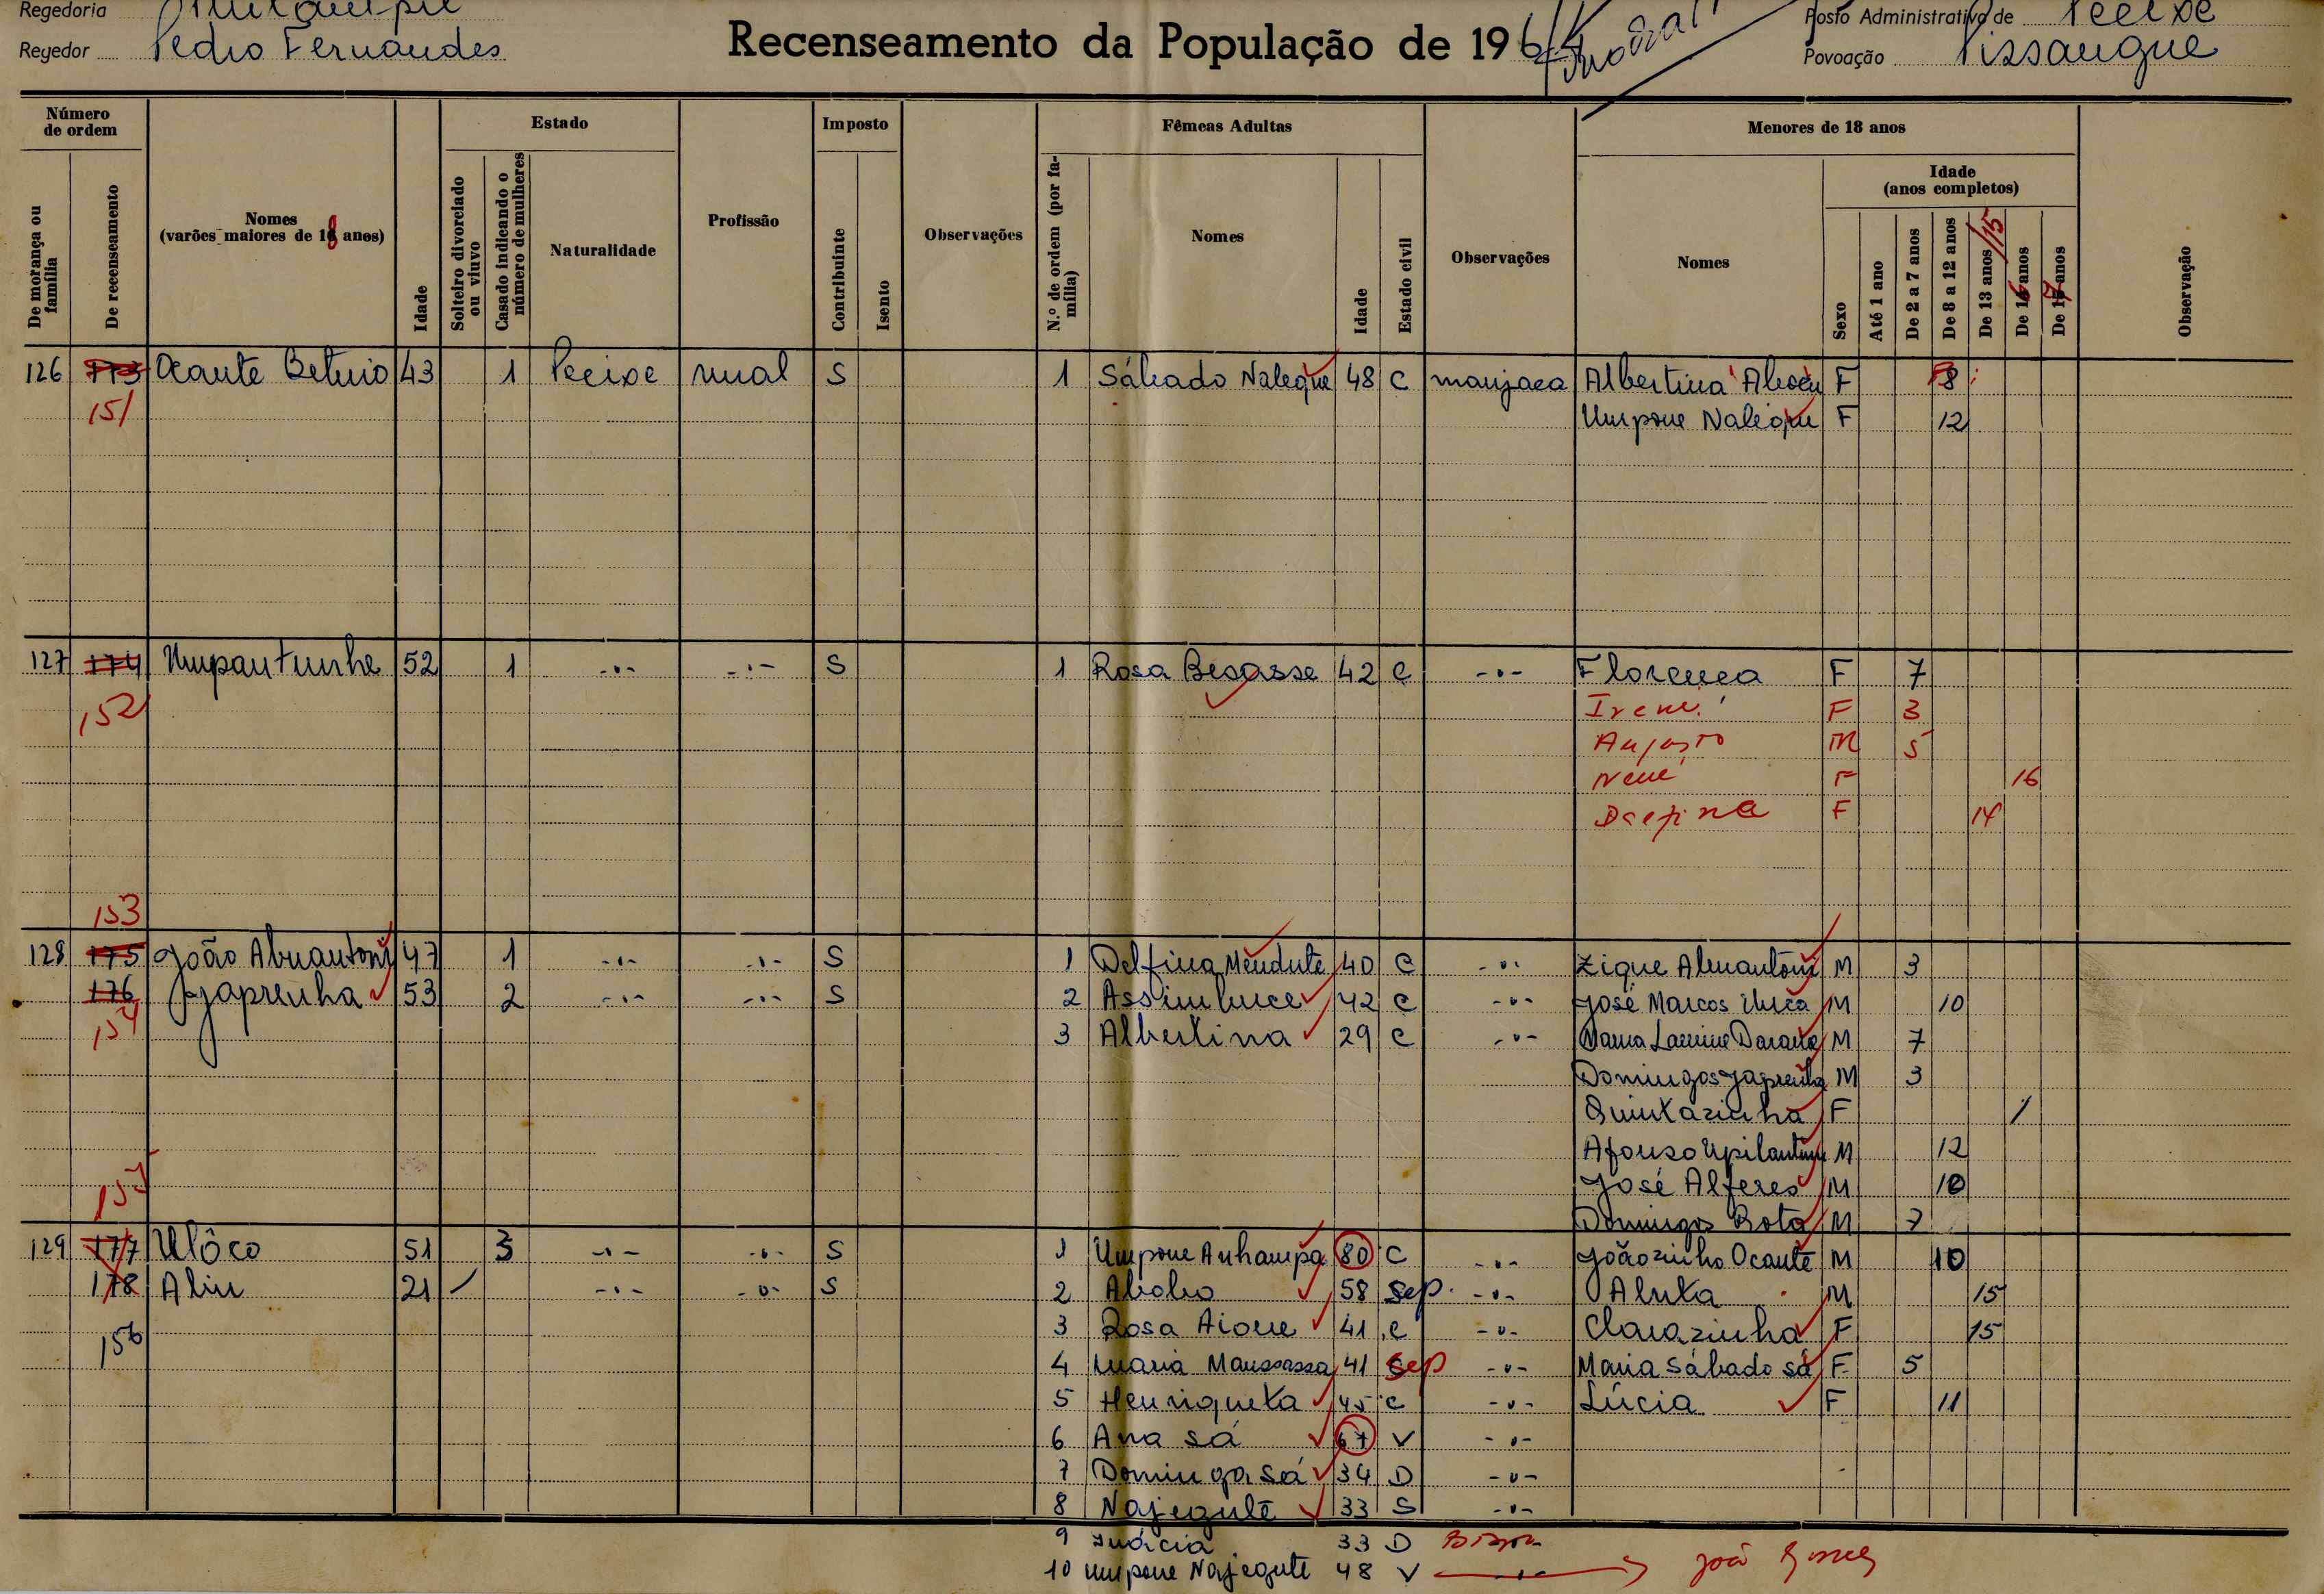 Regedoria
Regedor Pedro Fernandes
Recenseamento da População de 196
Posto Administrativo de Pecixe
Povoação Pissangue
Número de ordem
De morança ou família
De recenseamento
Nomes (varões maiores de 18 anos)
Idade
Estado
Solteiro divorciado ou viuvo
Casado indicando o número de mulheres
Naturalidade
Profissão
Imposto
Contribuinte
Isento
Observações
Fêmeas Adultas
N.º de ordem (por família)
Nomes
Idade
Estado civil
Observações
Menores de 18 anos
Nomes
Sexo
Idade (anos completos)
Até 1 ano
De 2 a 7 anos
De 8 a 12 anos
De 13 anos /15
De 16 anos
De 17 anos
Observação
126 173 Ocante Betuio 43 1 Pecixe rural S 1 Sábado Naleque 48 C manjaca Albertina F 8
151 Umpone Naleque F 12
127 174 Umpantunhe 52 1 -.- -.- S 1 Rosa Besasse 42 C -.- Florença F 7
152 Irene F 3
Augusto M 5
Nené F 16
Delfina F 14
153
128 175 João Abuantoni 47 1 -.- -.- S 1 Delfina Mendute 40 C -.- Zique Abuantoni M 3
176 Japrenha 53 2 -.- -.- S 2 Assimbuce 42 C -.- José Marcos M 10
154 3 Albertina 29 C -.- M 7
Domingos Japrenha M 3
Quintazinha F /
Afonso Upilantuni M 12
José Alferes M 10
155 Domingos Bota M 7
129 177 Ulôco 51 3 -.- -.- S 1 Umpone Anhampa 80 C -.- Joãozinho Ocante M 10
178 Aliu 21 / -.- -.- S 2 Abobo 58 sep. -.- Aluta M 15
156 3 Rosa Aioue 41 C -.- Clarazinha F 15
4 Maria Maussassa 41 sep -.- Maria Sábado Sá F 5
5 Henriqueta 45 C -.- Lúcia F 11
6 Ana Sá 67 V -.-
7 Dominga Sá 34 D -.-
8 Najegute 33 S -.-
9 33 D
10 Umpone Najegute 48 V -.- João Gomes